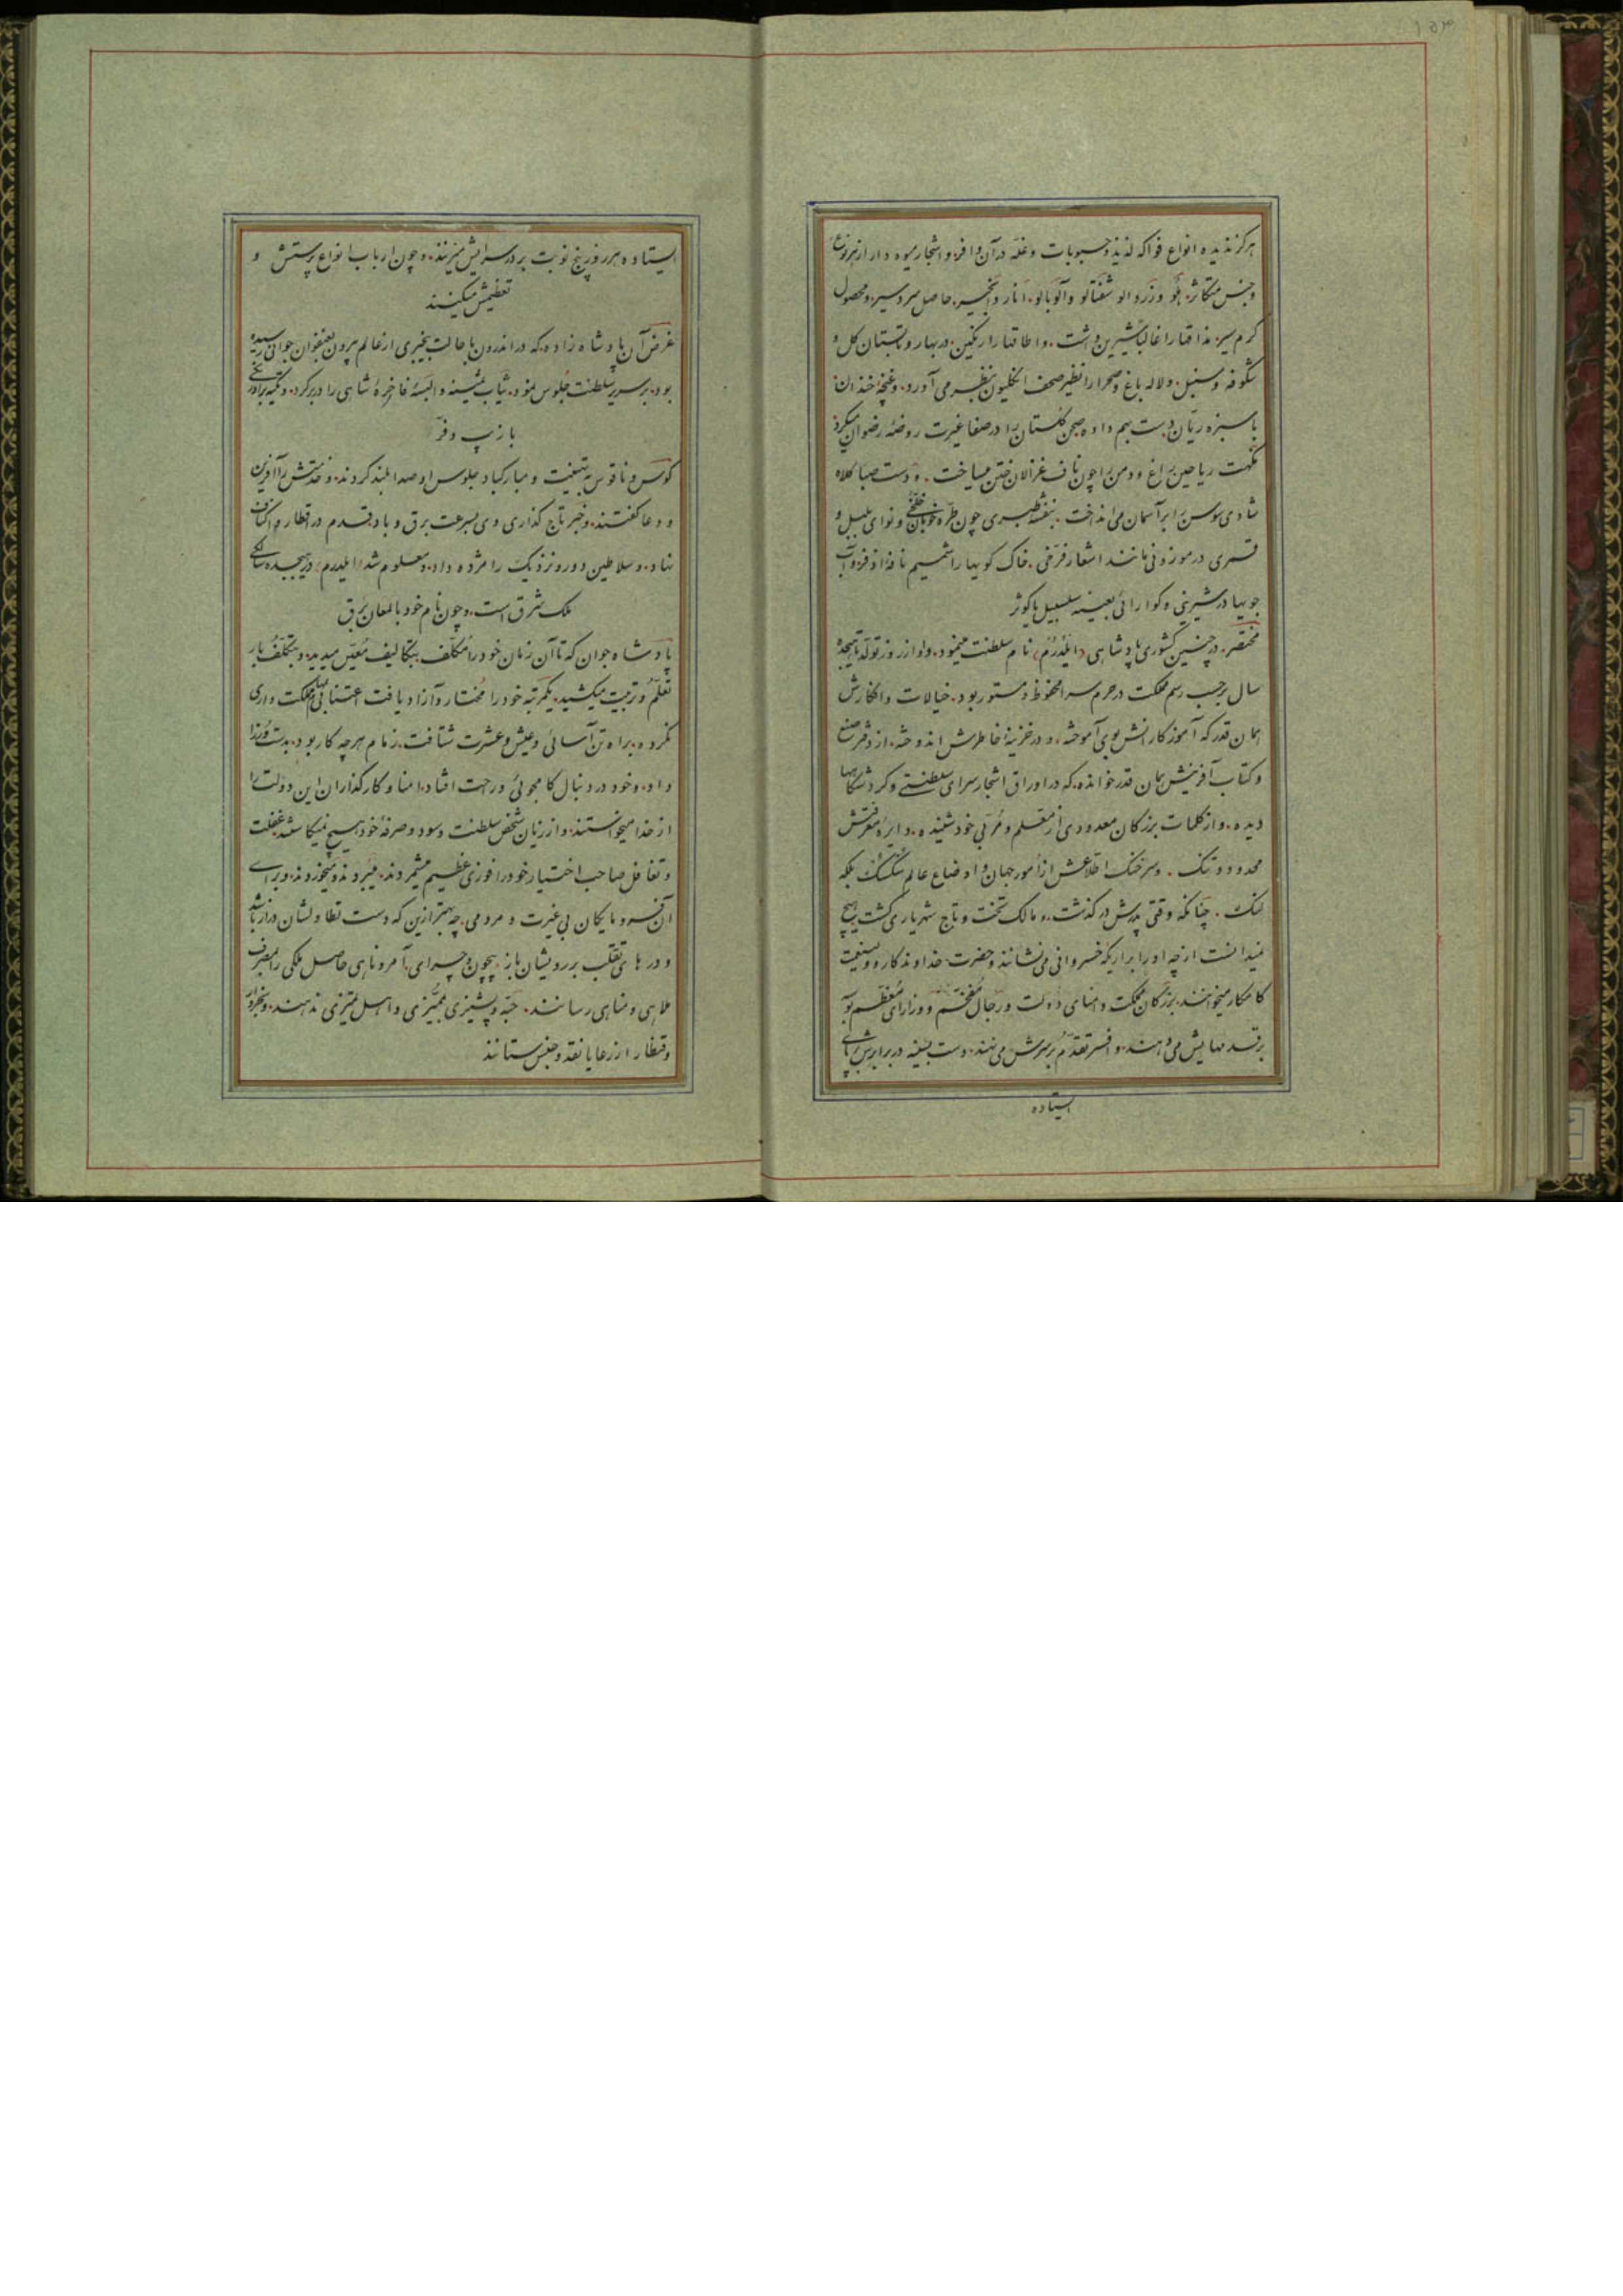 هرگز ندیده انواع فواکه لذیذ و حبوبات و غله در آن وافر و اشجار میوه دار از هر نوع
و جنس متکاثر هلو و زردالو شفتالو و آلوبالو انار و انجیر حاصل سردسیر و محصول
گرم سیر مذاقها را غالباً شیرین داشت و اطاقها را رنگین در بهار و تابستان گل و
شکوفه و سنبل و لاله باغ و صحرا را نظیر صحف انگلیون بنظر می آورد و غنچه خندان
با سبزه ریان دست بهم داده صحن گلستان را در صفا غیرت روضه رضوان میکرد
نکهت ریاحین راغ و دمن را چون ناف غزالان ختن میساخت و دست صبا کلاه
شادی سوسن را بر آسمان می انداخت بنفشه طبری چون طره خوبان خلخی و نوای بلبل و
قمری در موزونی مانند اشعار فرخی خاک کوهها را شمیم نافه اذفر و آب
جویها در شیرینی و گوارائی بعینه سلسبیل یا کوثر
مختصر در چنین کشوری پادشاهی (ایلدرم) نام سلطنت مینمود و او از روز تولد تا هیجده
سال برحسب رسم مملکت در حرم سرا محفوظ و مستور بود خیالات و افکارش
همان قدر که آموزگارانش بوی آموخته و در خزینه خاطرش اندوخته از دفتر صنع
و کتاب آفرینش همان قدر خوانده که در اوراق اشجار سرای سلطنتی و گردشگاهها
دیده و از کلمات بزرگان معدودی از معلم و مربی خود شنیده دایره معرفتش
محدود و تنگ و سرخنگ اطلاعش از امور جهان و اوضاع عالم شکسک بلکه
لنگ چنانکه وقتی پدرش درگذشت و مالک تخت و تاج شهریاری گشت هیچ
نمیدانست از چه او را بر اریکه خسروانی می نشانند و حضرت خداوندگار و ولینعمت
کامکار میخوانند بزرگان مملکت و امنای دولت و رجال مفخم و وزرای معظم بوسه
بر قدمهایش می دهند و افسر تقدم بر سرش می نهند دست بسینه در برابرش بر پای
ایستاده
ایستاده هر روز پنج نوبت بر در سرایش میزنند و چون ارباب انواع پرستش و
تعظیمش میکنند
غرض آن پادشاه زاده که در اندرون با حالت بیخبری از عالم بیرون بعنفوان جوانی رسیده
بود بر سریر سلطنت جلوس نمود ثیاب ثمینه و البسه فاخره شاهی را در بر کرد و تکیه بر اورنگی
با زیب و فر
کوس و ناقوس بتهنیت و مبارکباد جلوس او صدا بلند کردند و خدمتش را آفرین
و دعا گفتند و خبر تاج گذاری وی بسرعت برق و باد قدم در اقطار و اکناف
نهاد و سلاطین دور و نزدیک را مژده داد و معلوم شد (ایلدرم) در هیجده سالگی
ملک شرق است و چون نام خود با لمعان برق
پادشاه جوان که تا آن زمان خود را مکلف بتکالیف معین میدید و بتکلف بار
تعلم و تربیت میکشید یکمرتبه خود را مختار و آزاد یافت اعتنا بمهام مملکت داری
نکرده براه تن آسائی و عیش و عشرت شتافت زمام هر چه کار بود بدست وزرا
داد و خود در دنبال کامجوئی و راحت افتاد امنا و کارگذاران این دولت را
از خدا میخواستند و از زیان شخص سلطنت و سود و صرفه خود هیچ نمیکاستند غفلت
و تغافل صاحب اختیار خود را فوزی عظیم میشمردند میبردند و میخوردند و برای
آن فرومایگان بی غیرت و مردمی چه بهتر ازین که دست تطاولشان دراز باشد
و درهای تقلب بر رویشان باز بیچون و چرای آمر و ناهی حاصل ملکی را بمصرف
ملاهی و مناهی رسانند حبه و پشیزی بممیزی و اهل تمیزی ندهند و بخروار
و قنطار از رعایا نقد و جنس ستانند